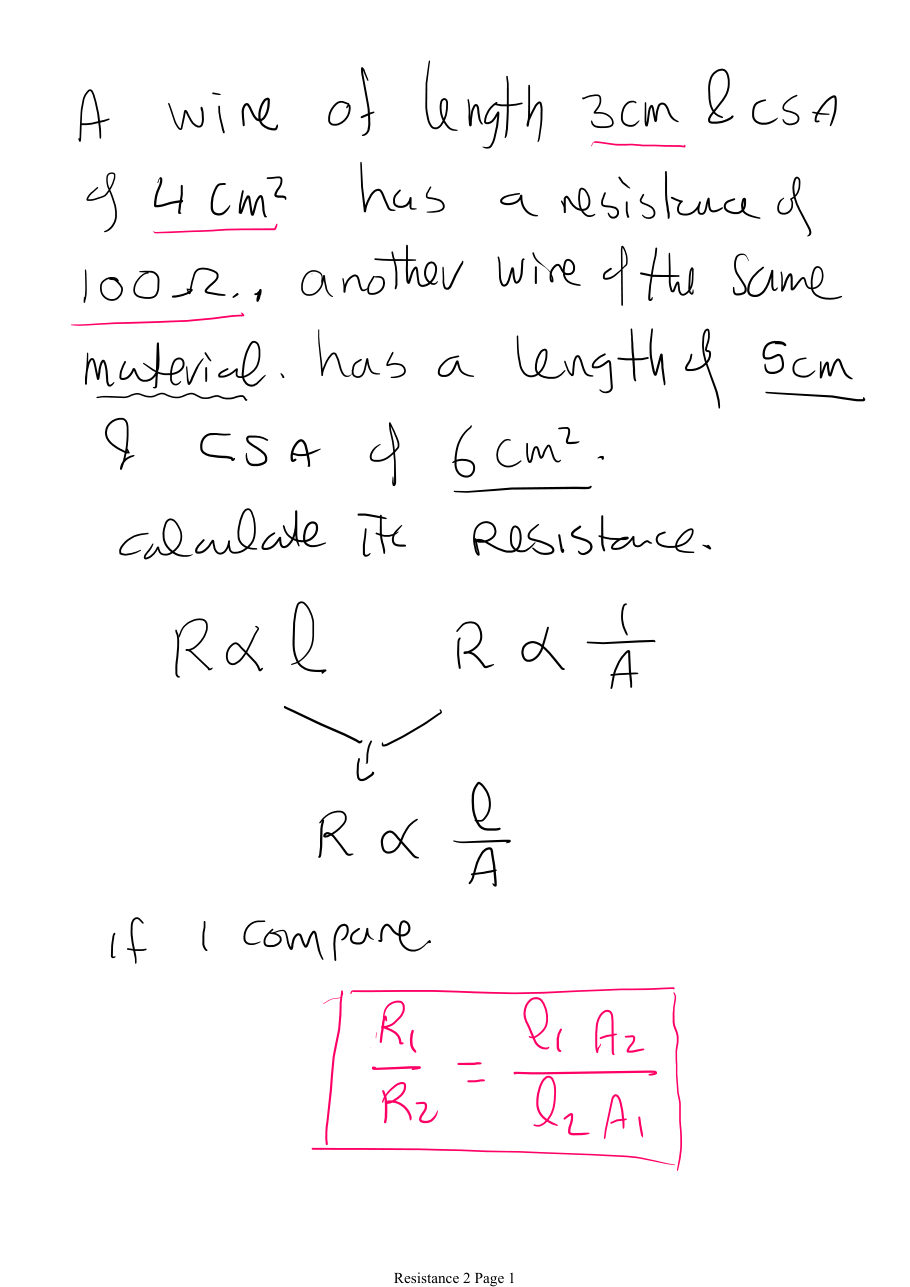 A wire of length 3cm & CSA
of 4 cm² has a resistance of
100 Ω., another wire of the same
material. has a length of 5cm
& CSA of 6 cm².
calculate its Resistance.
R ∝ l    R ∝ 1/A
R ∝ l/A
if I compare.
R₁/R₂ = l₁ A₂ / l₂ A₁
Resistance 2 Page 1